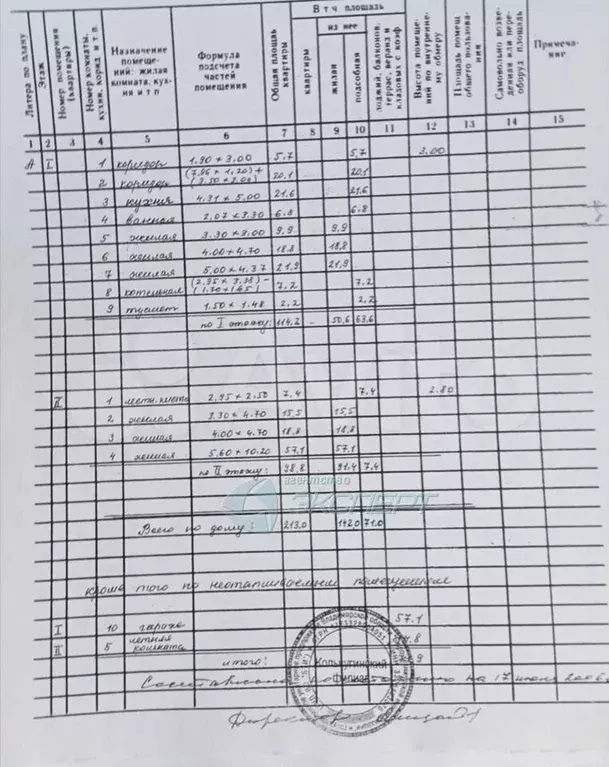 Литера по плану
Этаж
Номер помещения (квартиры)
Номер комнаты, кухни, корид. и т.п.
Назначение помеще-
ний: жилая
комната, кух-
ня и т п
Формула
подсчета
частей
помещения
Общая площадь квартиры
В т ч площадь
квартиры
из нее
жилая
подсобная
лоджий, балконов, террас, веранд и кладовых с коэф
Высота помеще-
ний по внутренне-
му обмеру
Площадь помещ
общего пользова-
ния
Самовольно возве-
дения или пере-
оборуд площадь
Примеча-
ние
1 2 3 4 5 6 7 8 9 10 11 12 13 14 15
А I 1 коридор 1.90 × 3.00 5.7 5.7 3.00
2 коридор (7.96 × 1.20) + (3.50 × 3.00) 20.1 20.1
3 кухня 4.31 × 5.00 21.6 21.6
4 ванная 2.07 × 3.30 6.8 6.8
5 жилая 3.30 × 3.00 9.9 9.9
6 жилая 4.00 × 4.70 18.8 18.8
7 жилая 5.00 × 4.37 21.9 21.9
8 котельная (2.95 × 3.38) - (1.70 × 1.65) 7.2 7.2
9 туалет 1.50 × 1.48 2.2 2.2
по I этажу: 114.2 - 50.6 63.6
II 1 лестн. клетка 2.95 × 2.50 7.4 7.4 2.80
2 жилая 3.30 × 4.70 15.5 15.5
3 жилая 4.00 × 4.70 18.8 18.8
4 жилая 5.60 × 10.20 57.1 57.1
по II этажу: 98.8 91.4 7.4
агентство
ЭКСПЕРТ
Всего по дому: 213.0 142.0 71.0
кроме того по неотапливаемым помещениям
I 10 гараж 57.1
II 5 летняя комната .8
итого: 9
Кольчугинский
филиал
Составлено по на 17 июля 2006
Директор